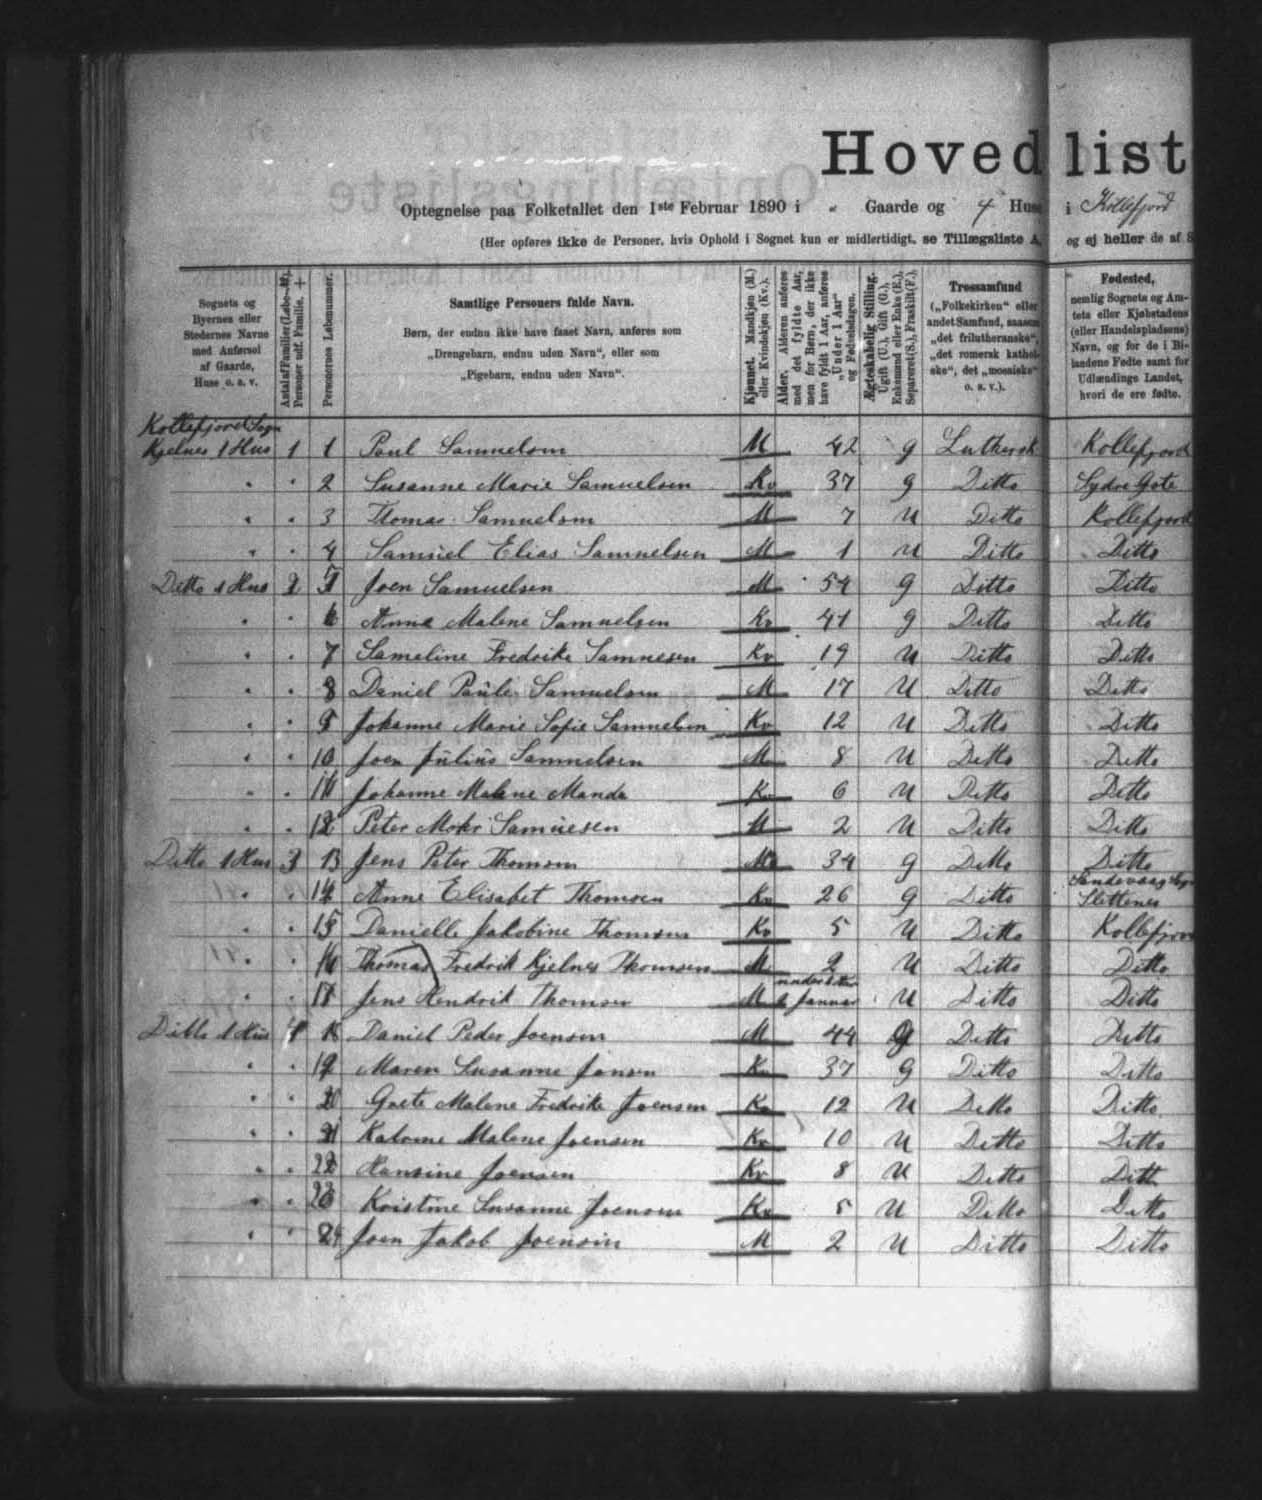 Hovedlist
Optegnelse paa Folketallet den 1ste Februar 1890 i " Gaarde og 4 Huse i Kollefjord
(Her opføres ikke de Personer, hvis Ophold i Sognet kun er midlertidigt, se Tillægsliste A, og ej heller de af S
Sognets og Byernes eller Stedernes Navne med Anførsel af Gaarde, Huse o. s. v.
Antal af Familier (Løbe-Nr.) Personer udf. Familie. +
Personernes Løbenummer.
Samtlige Personers fulde Navn.
Børn, der endnu ikke have faaet Navn, anføres som
„Drengebarn, endnu uden Navn“, eller som
„Pigebarn, endnu uden Navn“.
Kjønnet. Mandkjøn (M.) eller Kvindekjøn (Kv.).
Alder. Alderen anføres med det fyldte Aar, men for Børn, der ikke have fyldt 1 Aar, anføres „Under 1 Aar“ og Fødselsdagen.
Ægteskabelig Stilling. Ugift (U.), Gift (G.), Enkemand eller Enke (E.), Separeret (S.), Fraskilt (F.).
Trossamfund
(„Folkekirken“ eller andet Samfund, saasom „det frilutheranske“, „det romersk katholske“, det „mosaiske“ o. s. v.).
Fødested,
nemlig Sognets og Amtets eller Kjøbstadens (eller Handelspladsens) Navn, og for de i Bilandene Fødte samt for Udlændinge Landet, hvori de ere fødte.
Kollefjord Sogn
Kjelnes 1 Hus 1 1 Poul Samuelsen M 42 g Luthersk Kollefjord
" " 2 Susanne Marie Samuelsen Kv 37 g Ditto Sydre Gote
" " 3 Thomas Samuelsen M 7 U Ditto Kollefjord
" " 4 Samuel Elias Samuelsen M 1 U Ditto Ditto
Ditto 1 Hus 2 5 Joen Samuelsen M 54 g Ditto Ditto
" " 6 Anna Malene Samuelsen Kv 41 g Ditto Ditto
" " 7 Sameline Fredrike Samuesen Kv 19 U Ditto Ditto
" " 8 Daniel Pauli Samuelsen M 17 U Ditto Ditto
" " 9 Johanne Marie Sofie Samuelsen Kv 12 U Ditto Ditto
" " 10 Joen Július Samuelsen M 8 U Ditto Ditto
" " 11 Johanne Malene Manda Kv 6 U Ditto Ditto
" " 12 Peter Mohr Samuesen M 2 U Ditto Ditto
Ditto 1 Hus 3 13 Jens Peter Thomsen M 34 g Ditto Ditto
" " 14 Anne Elisabet Thomsen Kv 26 g Ditto Sandevaag Sogn Slettenes
" " 15 Danielle Jakobine Thomsen Kv 5 U Ditto Kollefjord
" " 16 Thomas Fredrik Kjelnes Thomsen M 2 U Ditto Ditto
" " 17 Jens Hendrik Thomsen M Januar U Ditto Ditto
Ditto 1 Hus 4 18 Daniel Peder Joensen M 44 g Ditto Ditto
" " 19 Maren Susanne Jonsen Kv 37 g Ditto Ditto
" " 20 Grete Malene Fredrike Joensen Kv 12 U Ditto Ditto
" " 21 Malene Joensen Kv 10 U Ditto Ditto
" " 22 Hansine Joensen Kv 8 U Ditto Ditt
" " 23 Kristine Susanne Joensen Kv 5 U Ditto Ditto
" " 24 Joen Jakob Joensen M 2 U Ditto Ditto